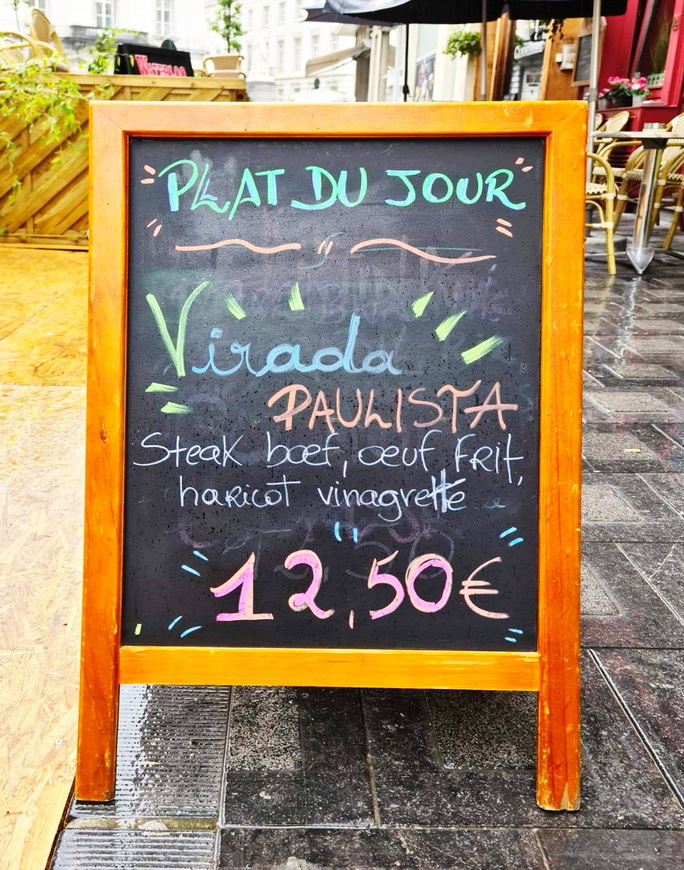 PLAT DU JOUR
Virada
PAULISTA
Steak bœf, œuf Frit,
haricot vinagrette
12,50€